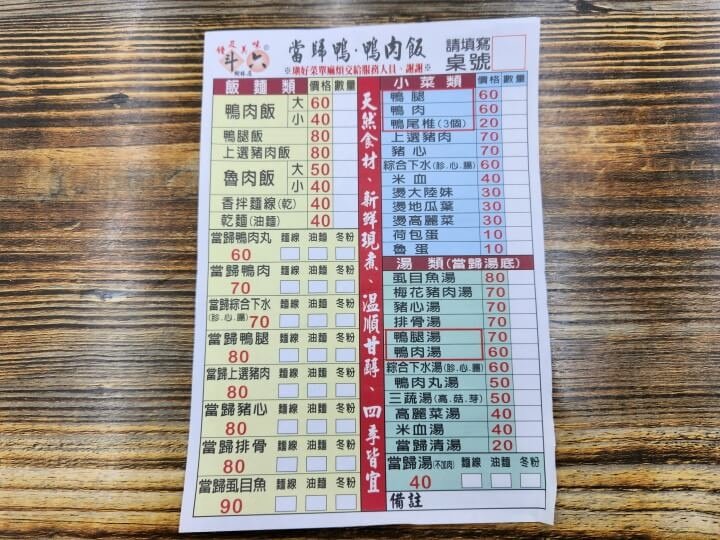 鐘是美味
斗六
當歸鴨·鴨肉飯
請填寫
桌號
※填好菜單麻煩交給服務人員、謝謝※
飯麵類 價格 數量
鴨肉飯 大 60
小 40
鴨腿飯 80
上選豬肉飯 80
魯肉飯 大 50
小 40
香拌麵線(乾) 40
乾麵(油麵) 40
當歸鴨肉丸 麵線 油麵 冬粉
60
當歸鴨肉 麵線 油麵 冬粉
70
當歸綜合下水 麵線 油麵 冬粉
(胗.心.腸) 70
當歸鴨腿 麵線 油麵 冬粉
80
當歸上選豬肉 麵線 油麵 冬粉
80
當歸豬心 麵線 油麵 冬粉
80
當歸排骨 麵線 油麵 冬粉
80
當歸虱目魚 麵線 油麵 冬粉
90
天然食材、新鮮現煮、溫順甘醇、四季皆宜
小菜類 價格 數量
鴨腿 60
鴨肉 60
鴨尾椎(3個) 20
上選豬肉 70
豬心 70
綜合下水(胗.心.腸) 60
米血 40
燙大陸妹 30
燙地瓜葉 30
燙高麗菜 30
荷包蛋 10
魯蛋 10
湯類(當歸湯底)
虱目魚湯 80
梅花豬肉湯 70
豬心湯 70
排骨湯 70
鴨腿湯 70
鴨肉湯 60
綜合下水湯(胗.心.腸) 60
鴨肉丸湯 50
三蔬湯(高.菇.芽) 50
高麗菜湯 40
米血湯 40
當歸清湯 20
當歸湯(不加肉) 麵線 油麵 冬粉
40
備註